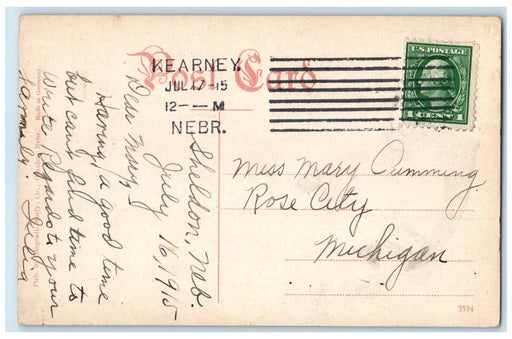 Post Card
KEARNEY.
JUL 17-15
12--M
NEBR.
U.S. POSTAGE
1 CENT 1
Shelton, Neb.
July 16, 1915
Dear Mary
Having a good time
but can't find time to
write. Regards to your
family. Julia
Miss Mary Cumming
Rose City
Michigan
Made in Germany
3524